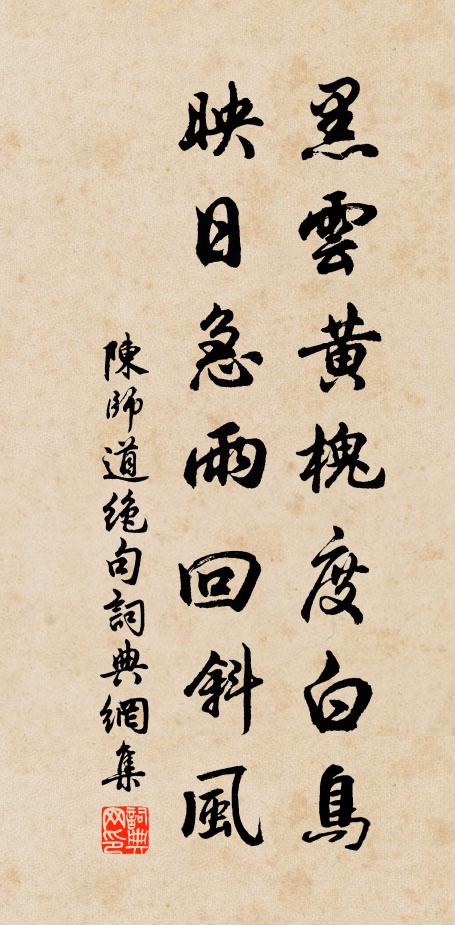 黑雲黃槐度白鳥
映日急雨回斜風
陳師道絶句詞典網集
詞典網印